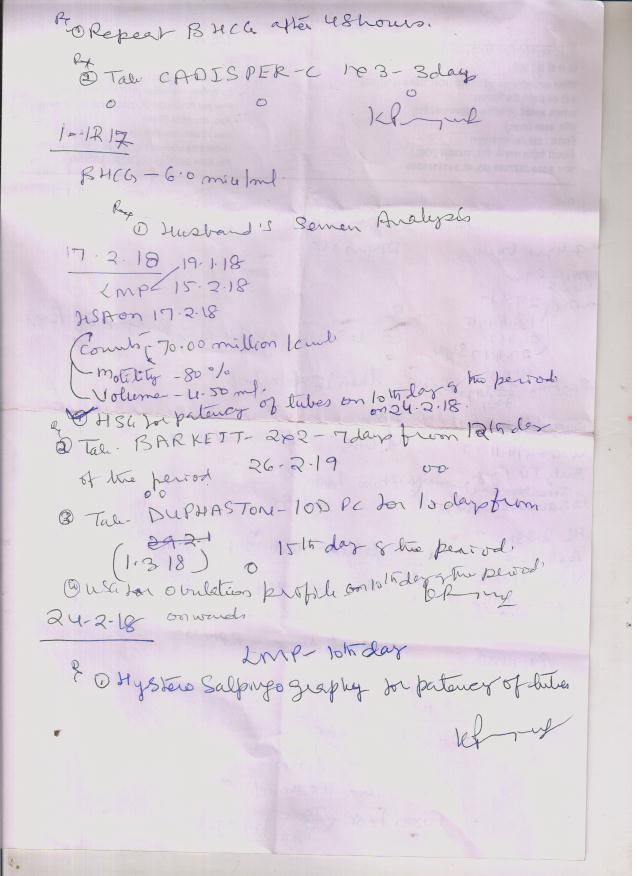 ① Repeat BHCG after 48 hours.
② Tab CADISPER-C 1x3 - 3days
1-12 17
BHCG - 6.0 miu/ml
① Husband's Semen Analysis
17.2.18 19.1.18
LMP 15.2.18
HSA on 17.2.18
Counts - 70.00 million /cumb
Motility - 80%
Volume - 4.50 ml.
① HSG for patency of tubes on 10th day of the period
on 24.2.18.
② Tab. BARKEIT- 2x2 - 7days from 12th day
of the period 26.2.19
③ Tab DUPHASTON - 10D PC for 10 days from
(1.3 18) 15th day of the period.
④ USG for ovulation profile on 10th day of the period
24-2-18 onwards
LMP - 10th day
① Hystero Salpingo graphy for patency of tubes